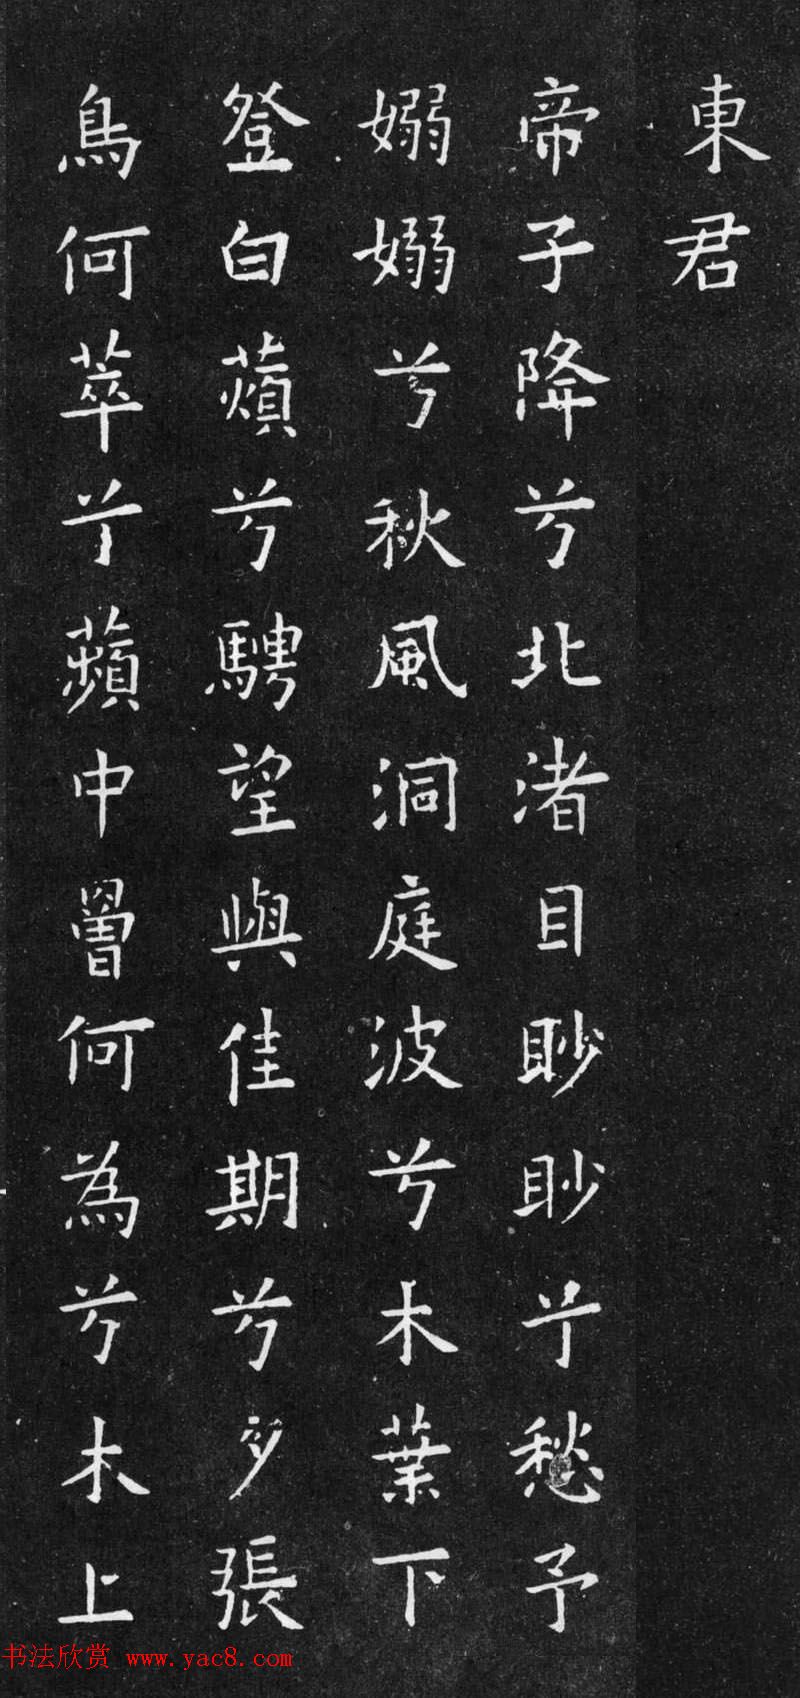 東君
帝子降兮北渚目眇眇兮愁予
嫋嫋兮秋風洞庭波兮木葉下
登白薠兮騁望與佳期兮夕張
鳥何萃兮蘋中罾何為兮木上
书法欣赏 www.yac8.com